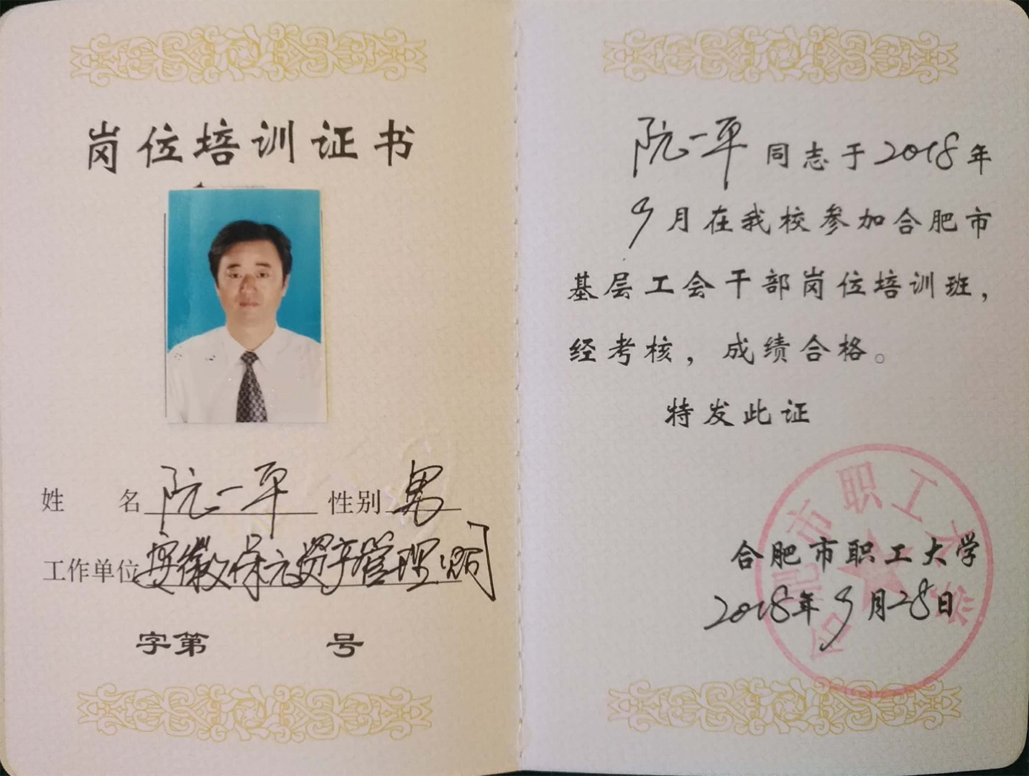 岗位培训证书
姓 名 阮一平 性别 男
工作单位 安徽保元资产管理公司
字第 号
阮一平同志于2018年
9月在我校参加合肥市
基层工会干部岗位培训班，
经考核，成绩合格。
特发此证
合肥市职工大学
合肥市职工大学
2018年9月28日